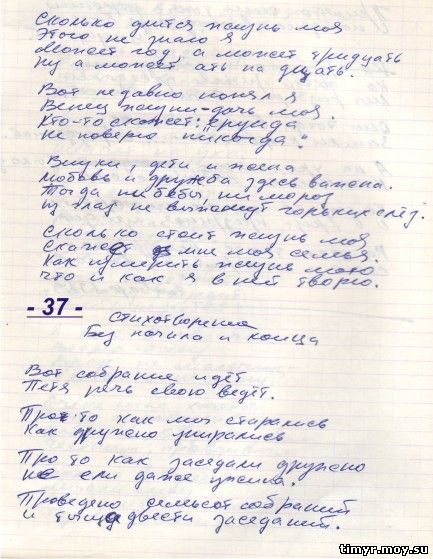 Сколько длится жизнь моя
Этого не знаю я
Может год, а может тридцать
ну а может ать на двцать.
Вот недавно понял я
Венец жизни - дочь моя.
Кто-то скажет: "ерунда
не поверю никогда".
Внуки, дети и жена
Любовь и дружба здесь важна.
Тогда ни беды, ни мороз
из глаз не выжмут горьких слёз.
Сколько стоит жизнь моя
Скажет мне моя семья.
Как измерить жизнь мою
что и как я в ней творю.
- 37 -
Стихотворение
Без начала и конца
Вот собрание идёт
Петя речь свою ведёт.
Про то как мы старались
Как дружно упирались
Про то как заседали дружно
не ели даже ужина.
Проведено семьсот собраний
и тыща двести заседаний.
timyr.moy.su